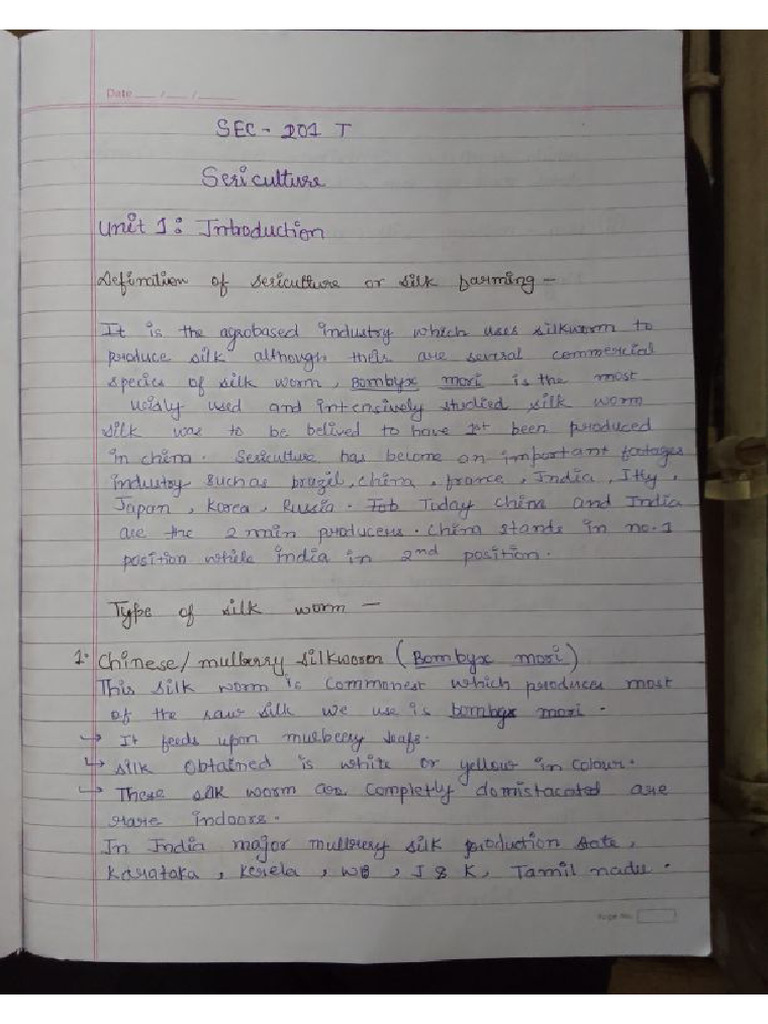 Date ___/___/___
SEC - 201 T
Sericulture
Unit 1: Introduction
Defination of sericulture or silk farming -
It is the agrobased industry which uses silkworm to
produce silk although their are several commercial
species of silk worm, Bombyx mori is the most
used and intensively studied silk worm
silk was to be belived to have 1st been produced
in china. Sericulture has become an important
industry such as brazil, china, france, India, Itly,
Japan, Korea, Russia. Today china and India
are the 2 min producers. China stands in no. 1
position while india in 2nd position.
Type of silk worm -
1. Chinese/mulberry silkworm (Bombyx mori)
This silk worm is commonest which produces most
of the raw silk we use is bombyx mori.
↳ It feeds upon mulbeery leafs.
↳ silk obtained is white or yellow in colour.
↳ These silk worm are completly domistacated are
rare indoors.
In India major mulbrery silk production state,
Karataka, Kerela, WB, J & K, Tamil nadu.
Page No.